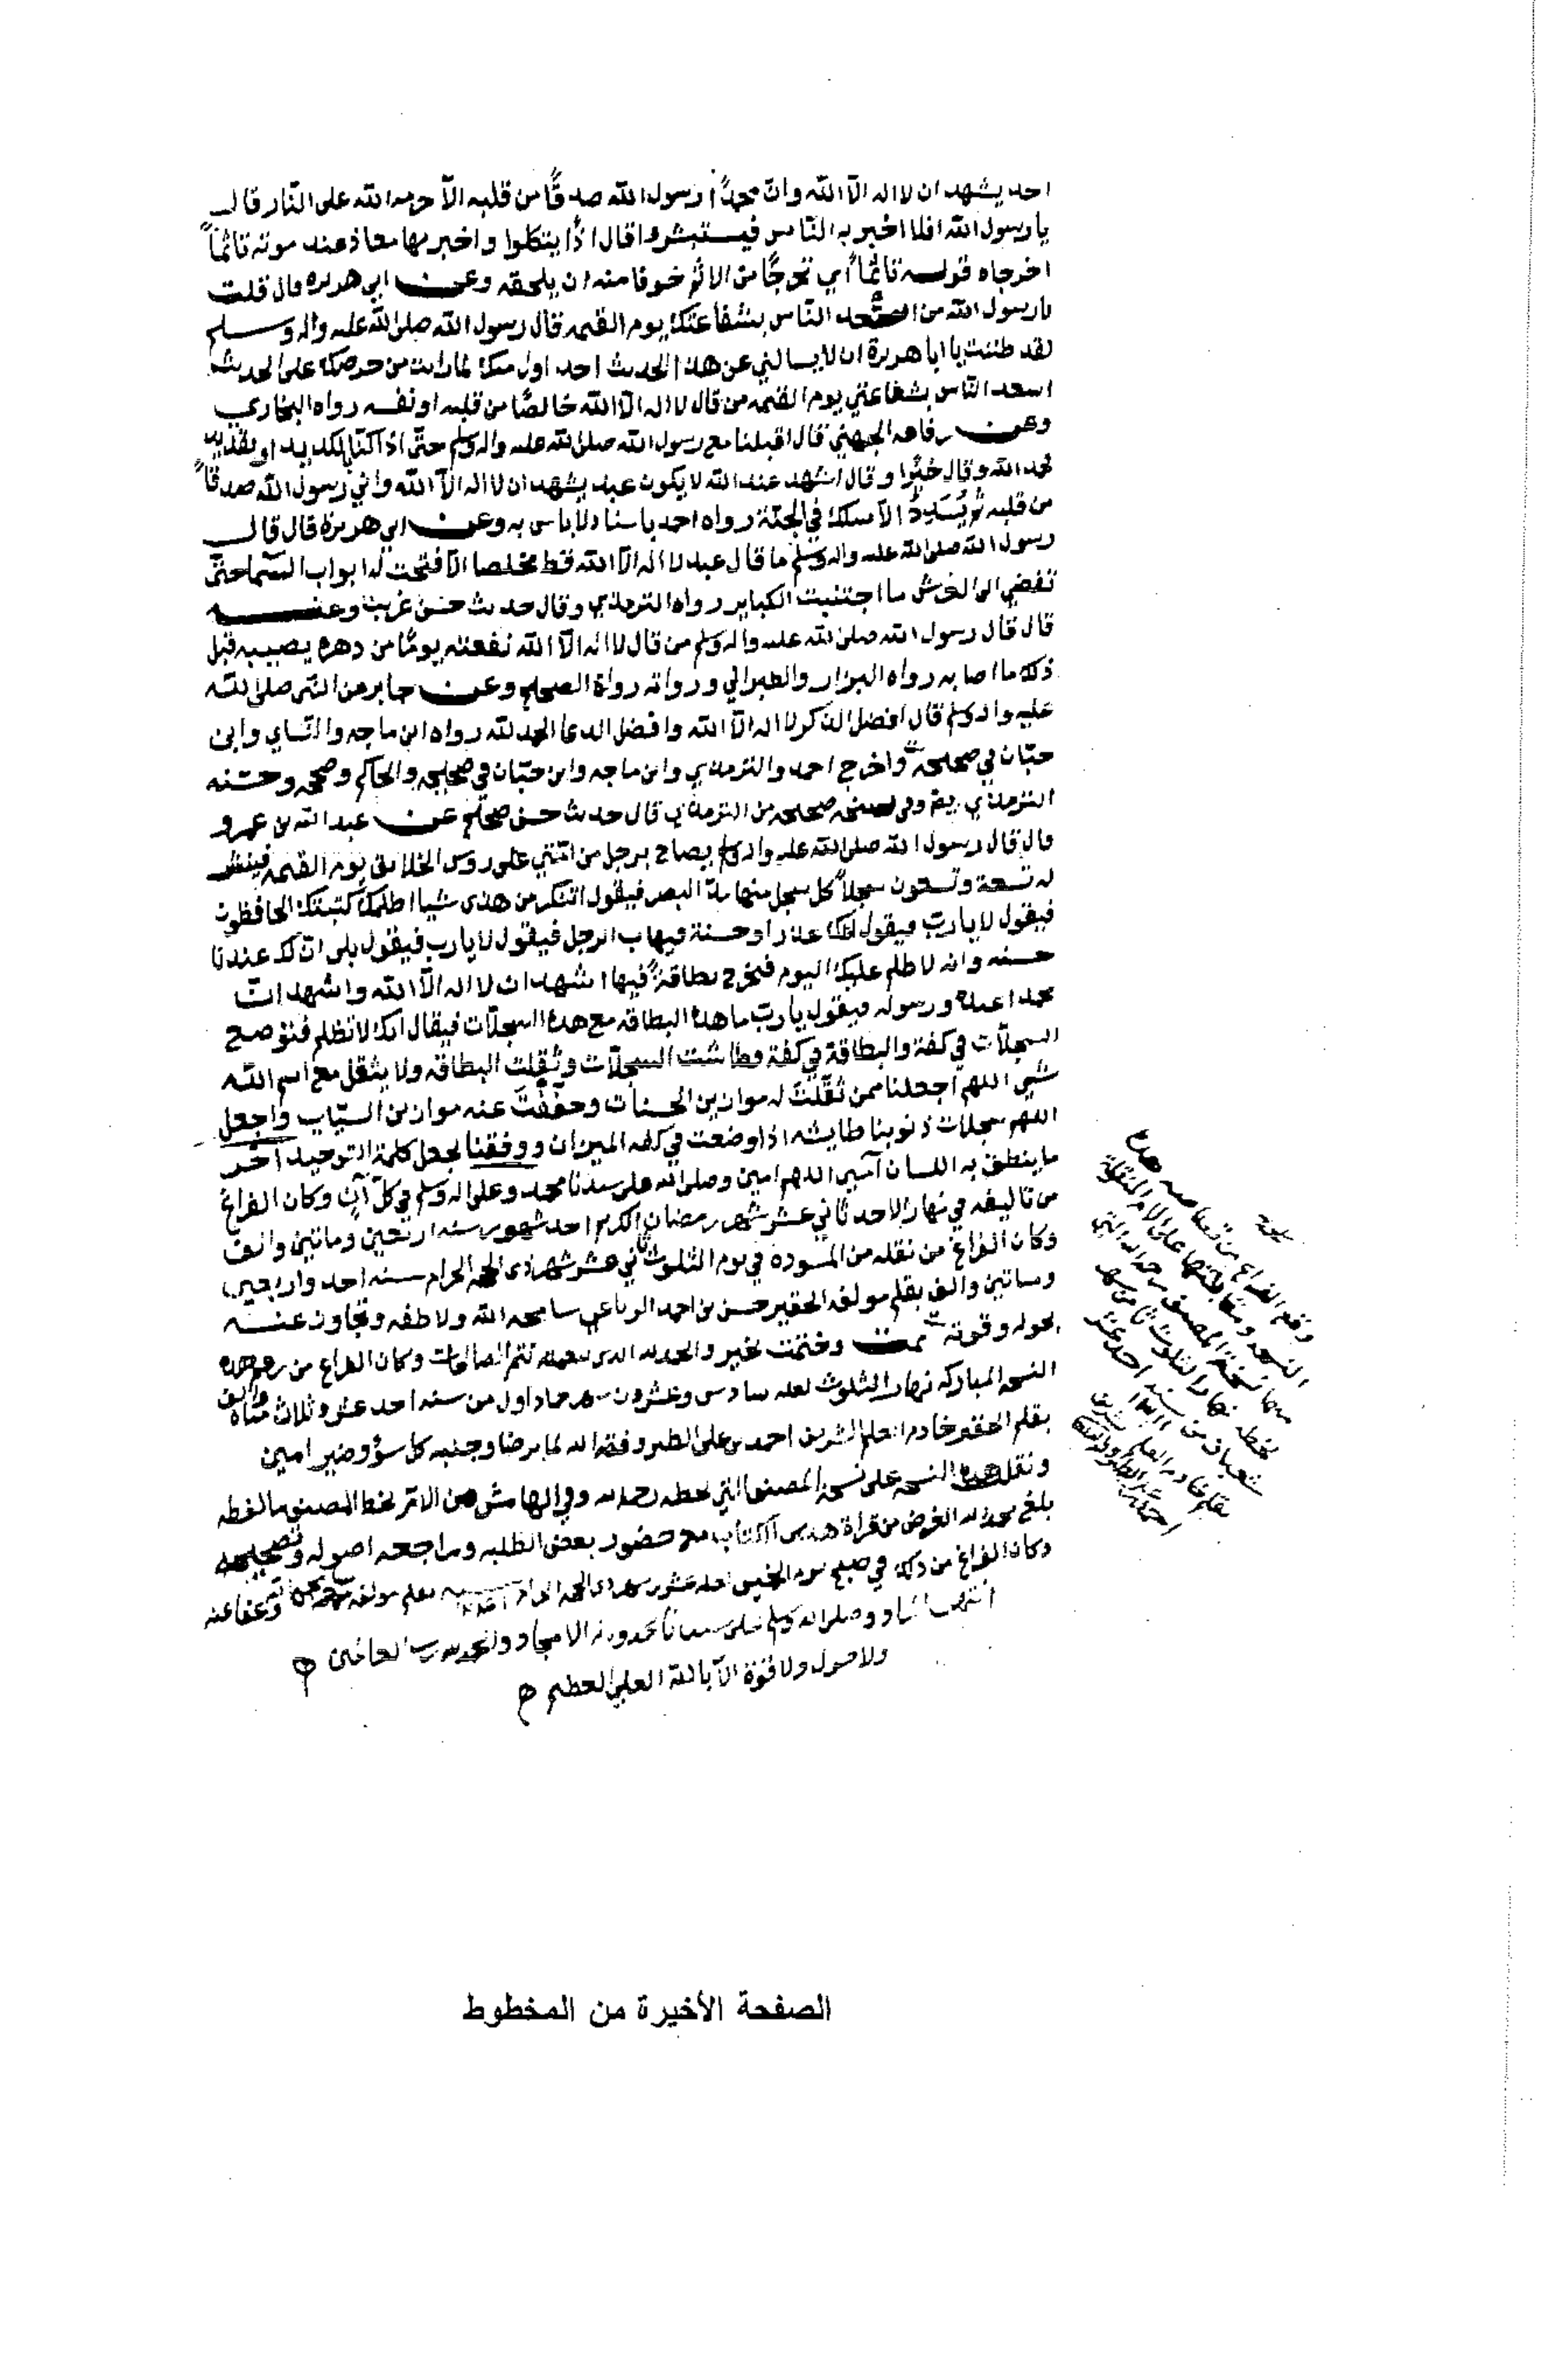 احد يشهد ان لا اله الا الله وان محمدًا رسول الله صدقًا من قلبه الا حرمه الله على النار قال
يا رسول الله افلا اخبر به الناس فيستبشروا قال اذًا يتكلوا واخبر بها معاذ عند موته تاثمًا
اخرجاه قوله تاثمًا اي تحرجًا من الاثم خوفا منه ان يلحقه وعن ابي هريره قال قلت
يا رسول الله من اسعد الناس بشفاعتك يوم القيمه قال رسول الله صلى الله عليه واله وسلم
لقد ظننت يا ابا هريرة ان لا يسالني عن هذا الحديث احد اول منك لما رايت من حرصك على الحديث
اسعد الناس بشفاعتي يوم القيمه من قال لا اله الا الله خالصًا من قلبه او نفسه رواه البخاري
وعن رفاعه الجهني قال اقبلنا مع رسول الله صلى الله عليه واله وسلم حتى اذا كنا بالكديد او بقديد
فحمد الله وقال خيرًا وقال اشهد عند الله لا يكون عبد يشهد ان لا اله الا الله واني رسول الله صدقًا
من قلبه ثم يُسَدِّدُ الا سلك في الجنة رواه احمد باسناد لا باس به وعن ابي هريرة قال قال
رسول الله صلى الله عليه واله وسلم ما قال عبد لا اله الا الله قط مخلصا الا فتحت له ابواب السما حتى
تفضي الى العرش ما اجتنبت الكباير رواه الترمذي وقال حديث حسن غريب وعنه
قال قال رسول الله صلى الله عليه واله وسلم من قال لا اله الا الله نفعته يومًا من دهره يصيبه قبل
ذلك ما اصابه رواه البزار والطبراني ورواته رواة الصحيح وعن جابر عن النبي صلى الله
عليه واله وسلم قال افضل الذكر لا اله الا الله وافضل الدعا الحمد لله رواه ابن ماجه والنساي وابن
حبّان في صحيحه واخرج احمد والترمذي وابن ماجه وابن حبّان في صحيحه والحاكم وصححه وحسّنه
الترمذي وفي نسخه صحيحه من الترمذي قال حديث حسن صحيح عن عبد الله بن عمرو
قال قال رسول الله صلى الله عليه واله وسلم يصاح برجل من امتي على روس الخلايق يوم القيمه فينشر
له تسعة وتسعون سجلًا كل سجل منها مدّ البصر فيقول اتنكر من هذى شيا اظلمك كتبتك الحافظون
فيقول لا يا رب فيقول الك عذر او حسنة فيهاب الرجل فيقول لا يا رب فيقول بلى ان لك عندنا
حسنه وانه لا ظلم عليك اليوم فتخرج بطاقةً فيها اشهد ان لا اله الا الله واشهد ان
محمدا عبده ورسوله فيقول يا رب ما هذه البطاقه مع هذه السجلات فيقال انك لا تظلم فتوضع
السجلات في كفة والبطاقة في كفة وطاشت السجلات وثقلت البطاقه ولا يثقل مع اسم الله
شي اللهم اجعلنا ممن ثَقَّلتَ له موازين الحسنات وخفَّفْتَ عنه موازين السيّاب واجعل
اللهم سجلات ذنوبنا طايشه اذا وضعت في كفه الميزان ووفقنا لجعل كلمة التوحيد آخر
ما ينطق به اللسان آمين اللهم امين وصلى الله على سيدنا محمد وعلى اله وسلم في كل آن وكان الفراغ
من تاليفه في نهار الاحد ثاني عشر شهر رمضان الكريم احد شهور سنه اربعين وماتين والف
وكان الفراغ من نقله من المسوده في يوم الثلوث ثاني عشر شهر ذى الحجه الحرام سنه احد واربعين
وماتين والف بقلم مولفه الحقير حسن بن احمد الرباعي سامحه الله ولاطفه وتجاوز عنه
بحوله وقوته تمت وختمت بخير والحمد لله الذى بنعمته تتم الصالحات وكان الفراغ من رقم هذه
النسخه المباركه نهار الثلوث لعله سادس وعشرون شهر جماد اول من سنه احد عشر وثلاث مئاه والف
بقلم الحقير خادم العلم الشريف احمد بن علي الطير وفقه الله لما يرضا وجنبه كل سؤ وضير امين
ونقل هذه النسخه على نسخة المصنف التي بخطه رحمه الله وفي الهامش من الاثر بخط المصنف ما لفظه
بلغ بحمد الله الغرض من قراة هذى الكتاب مع حضور بعض الطلبه ومراجعه اصوله وتصحيحه
وكان الفراغ من ذلك في صبح يوم الخميس احد عشر شهر ذى الحجه الحرام بقلم مولفه وعفا عنه
انتهى وصلى الله وسلم على سيدنا محمد واله الامجاد والحمد لله رب العالمين
ولا حول ولا قوة الا بالله العلي العظيم
وقع الفراغ من قصاصه هذه
النسخه ومقابلتها على الام المنقولة
منها نسخة المصنف رحمه الله التي
بخطه نهار الثلوث من شهر
شعبان من سنه احد عشر
بقلم خادم العلم الشريف
احمد بن علي الطير وفقه الله
الصفحة الأخيرة من المخطوط